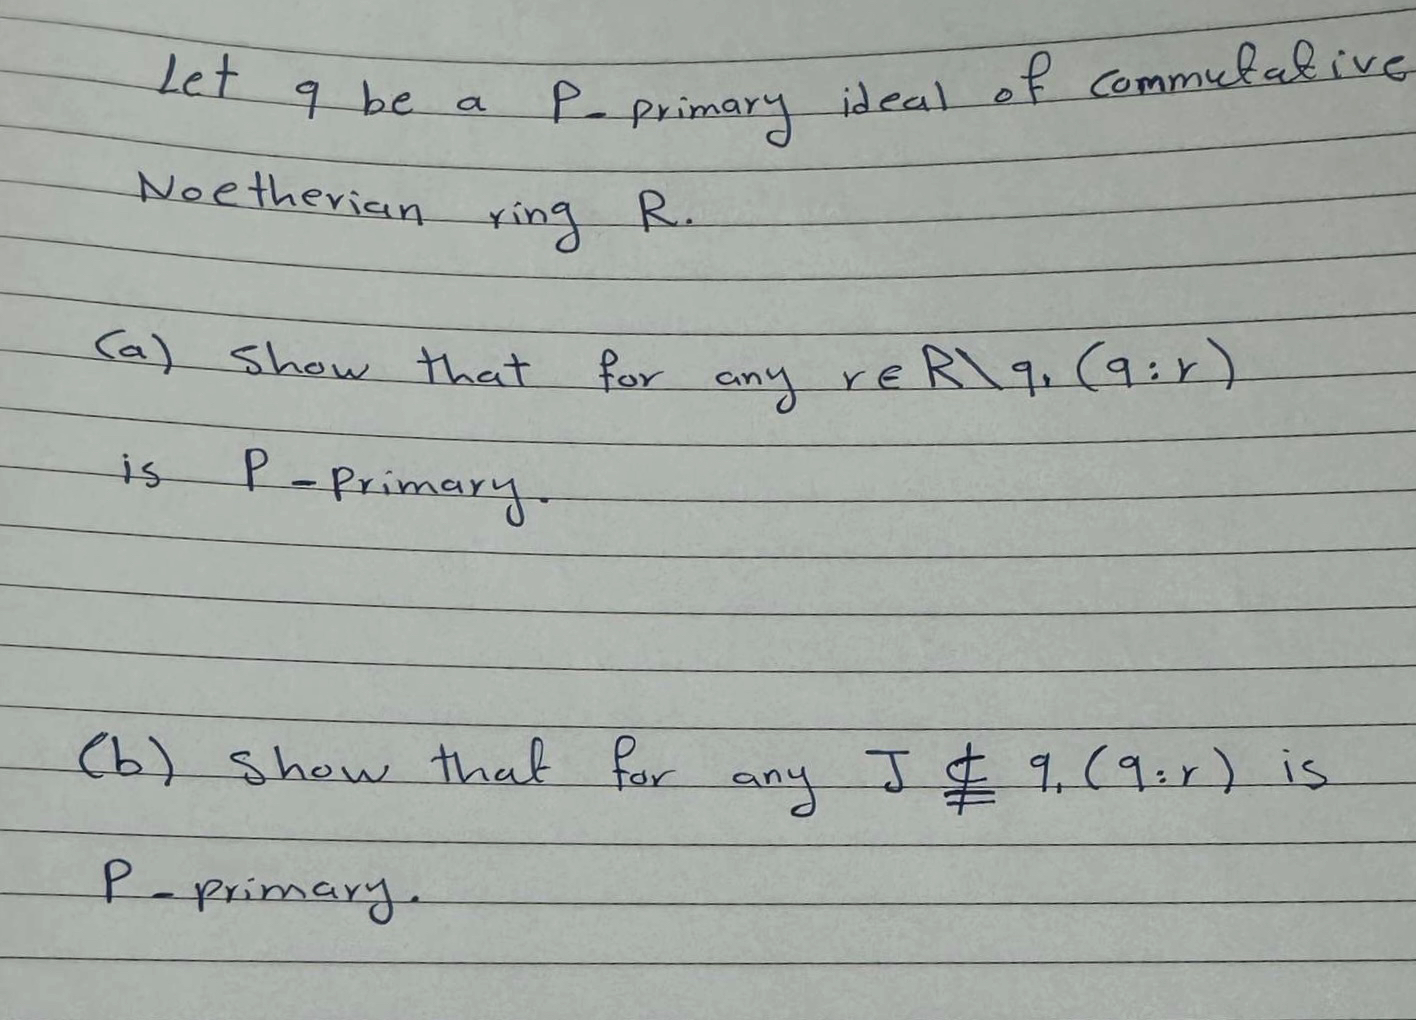 Let q be a P-primary ideal of commutative
Noetherian ring R.
(a) show that for any r∈R\q, (q:r)
is P-primary.
(b) show that for any J ⊈ q, (q:r) is
P-primary.